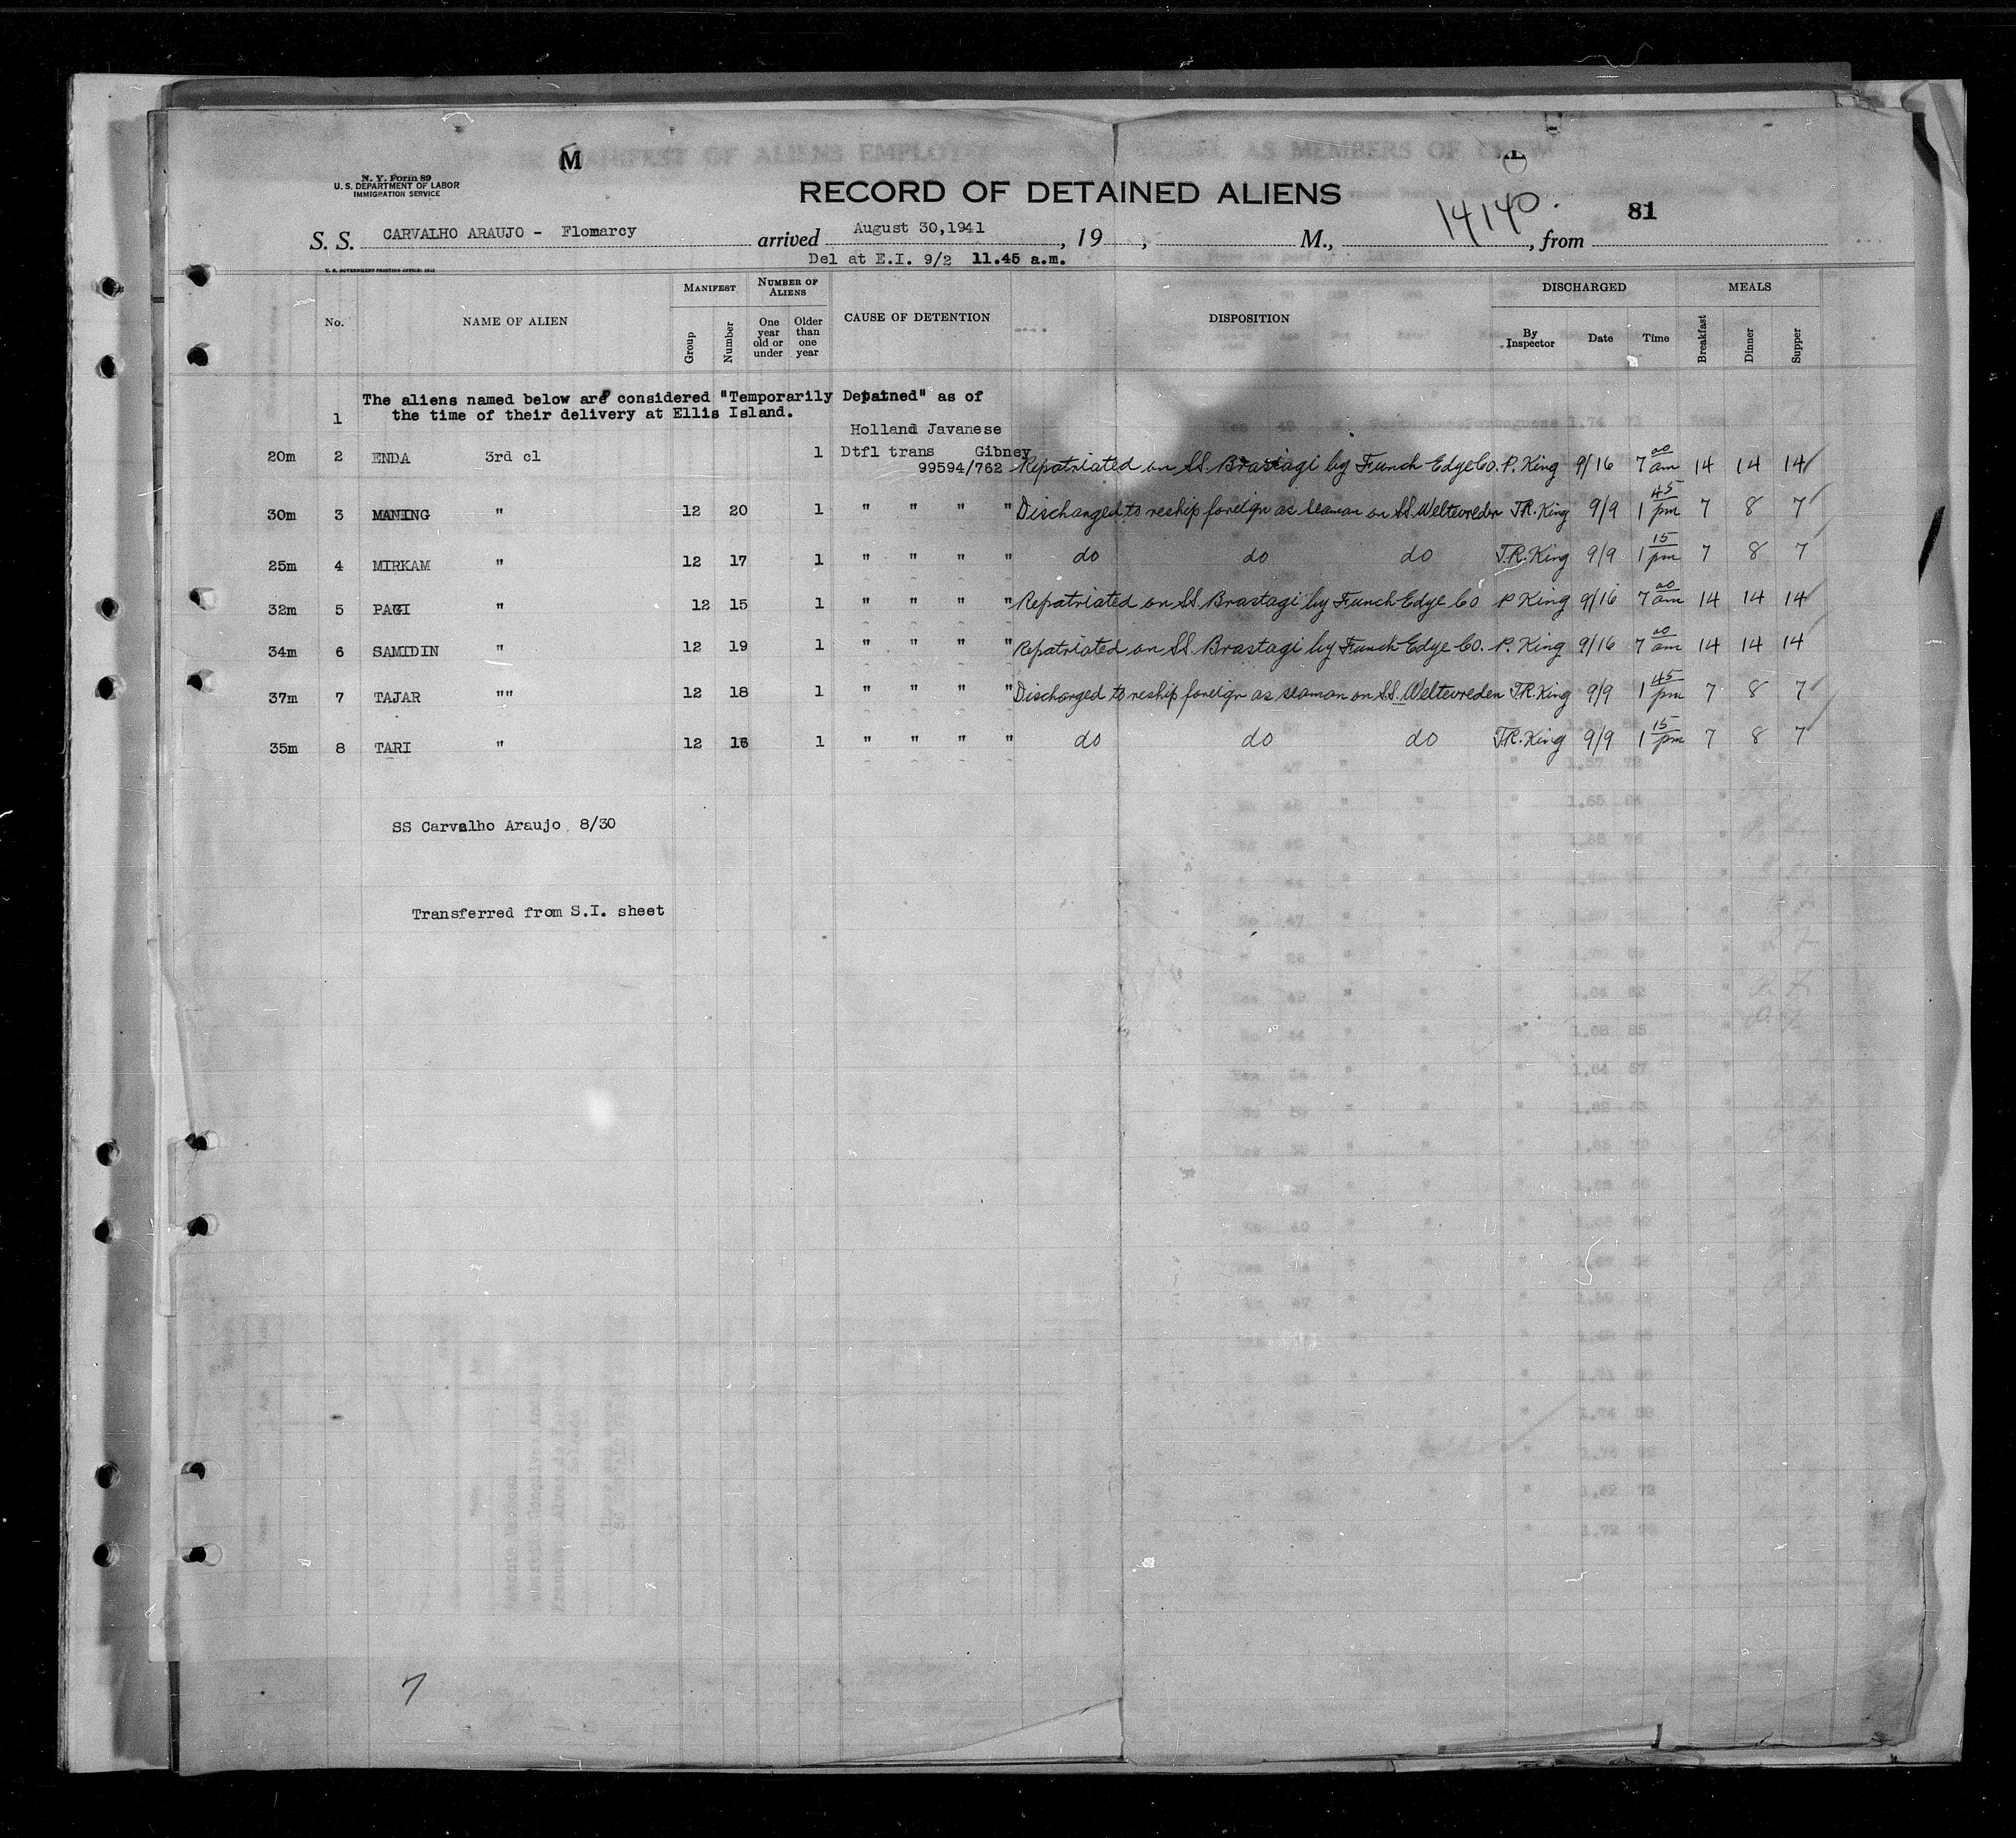 M
N. Y. Form 89
U. S. DEPARTMENT OF LABOR
IMMIGRATION SERVICE
RECORD OF DETAINED ALIENS
14140. 81
S. S. CARVALHO ARAUJO - Flomarcy arrived August 30,1941, 19 , M., , from
Del at E.I. 9/2 11.45 a.m.
U. S. GOVERNMENT PRINTING OFFICE:
No. NAME OF ALIEN MANIFEST Group Number NUMBER OF ALIENS One year old or under Older than one year CAUSE OF DETENTION DISPOSITION DISCHARGED By Inspector Date Time MEALS Breakfast Dinner Supper
The aliens named below are considered "Temporarily Detained" as of
1 the time of their delivery at Ellis Island.
Holland Javanese
20m 2 ENDA 3rd cl 1 Dtfl trans Gibney
99594/762 Repatriated on SS. Brastagi by Funch Edye Co. P. King 9/16 7 00 am 14 14 14
30m 3 MANING " 12 20 1 " " " " Discharged to reship foreign as seaman on SS. Weltevreden T.R. King 9/9 1 45 pm 7 8 7
25m 4 MIRKAM " 12 17 1 " " " " do do do T.R. King 9/9 1 15 pm 7 8 7
32m 5 PAGI " 12 15 1 " " " " Repatriated on SS. Brastagi by Funch Edye Co P King 9/16 7 00 am 14 14 14
34m 6 SAMIDIN " 12 19 1 " " " " Repatriated on SS. Brastagi by Funch Edye Co. P. King 9/16 7 00 am 14 14 14
37m 7 TAJAR "" 12 18 1 " " " " Discharged to reship foreign as seaman on SS. Weltevreden T.R. King 9/9 1 45 pm 7 8 7
35m 8 TARI " 12 16 1 " " " " do do do T.R. King 9/9 1 15 pm 7 8 7
SS Carvalho Araujo 8/30
Transferred from S.I. sheet
7